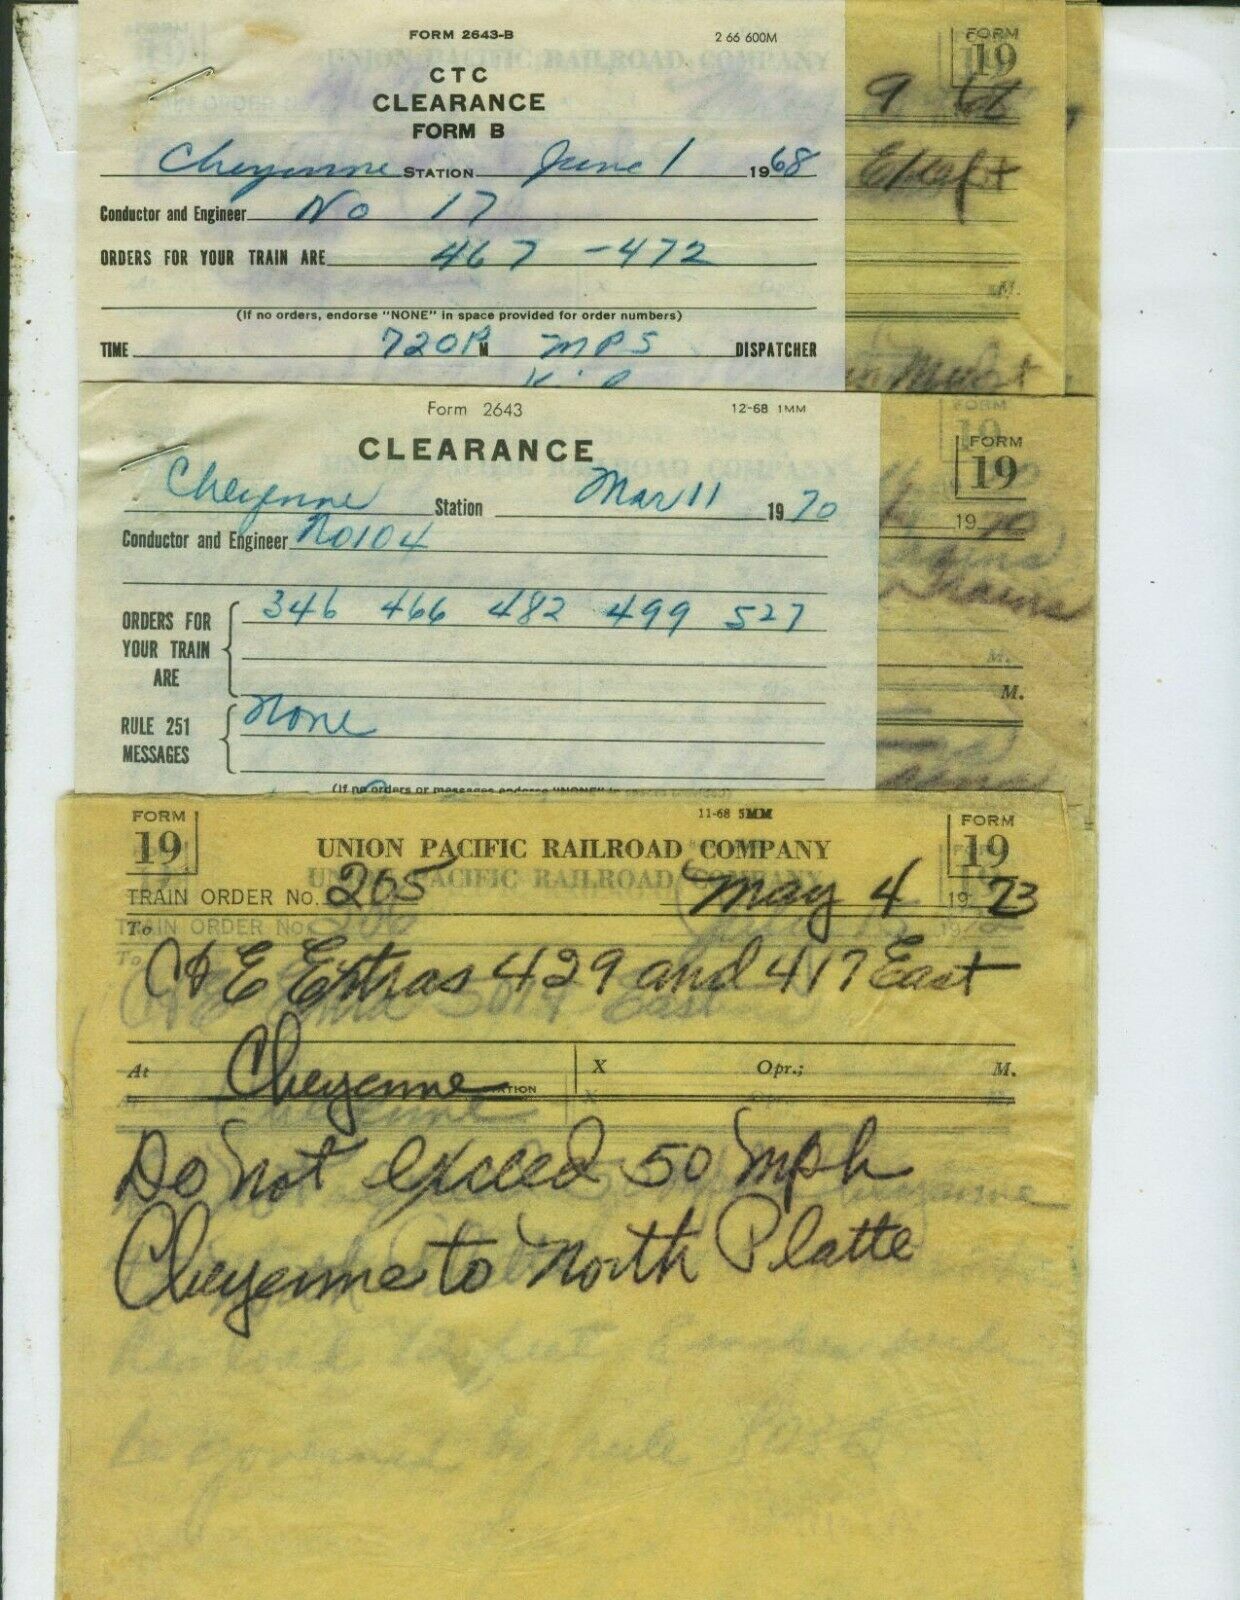 FORM 2643-B 2 66 600M
CTC
CLEARANCE
FORM B
Cheyenne STATION June 1 1968
Conductor and Engineer No 17
ORDERS FOR YOUR TRAIN ARE 467 - 472
(If no orders, endorse "NONE" in space provided for order numbers)
TIME 720P M MPS DISPATCHER
FORM
19
9
M.
Form 2643 12-68 1MM
CLEARANCE
Cheyenne Station Mar 11 1970
Conductor and Engineer No 104
ORDERS FOR YOUR TRAIN ARE 346 466 482 499 527
RULE 251 MESSAGES None
(If no orders or messages endorse "NONE" in
FORM
19
1970
Trains
M.
M.
FORM 19 11-68 5MM FORM 19
UNION PACIFIC RAILROAD COMPANY
TRAIN ORDER NO. 205 May 4 1973
To
C&E Extras 429 and 417 East
At Cheyenne STATION X Opr.; M.
Do Not exceed 50 mph
Cheyenne to North Platte